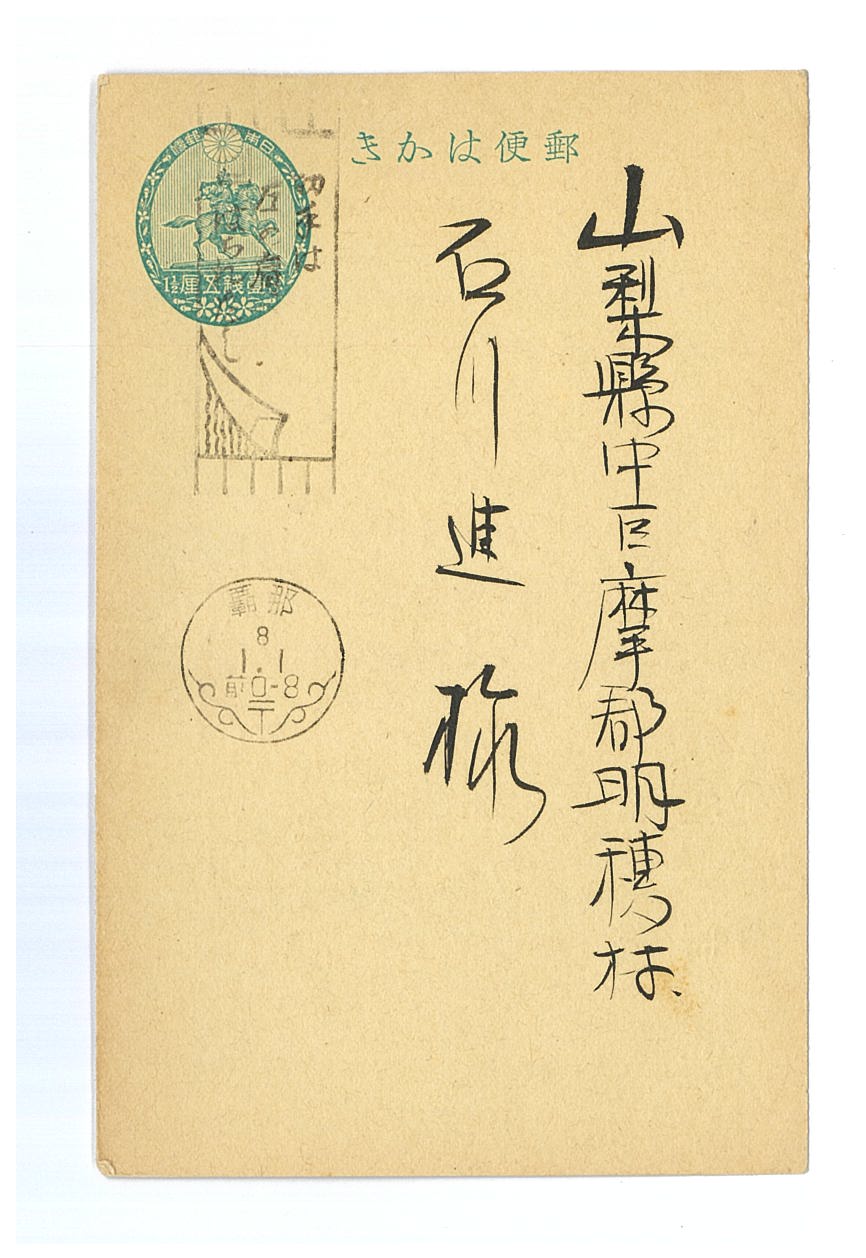 郵便はかき
山梨縣中巨摩郡明穂村、
石川進様
日本郵便
壹錢五厘
1½
切手は
左の肩
に
那覇
8
1.1
前0-8
〒